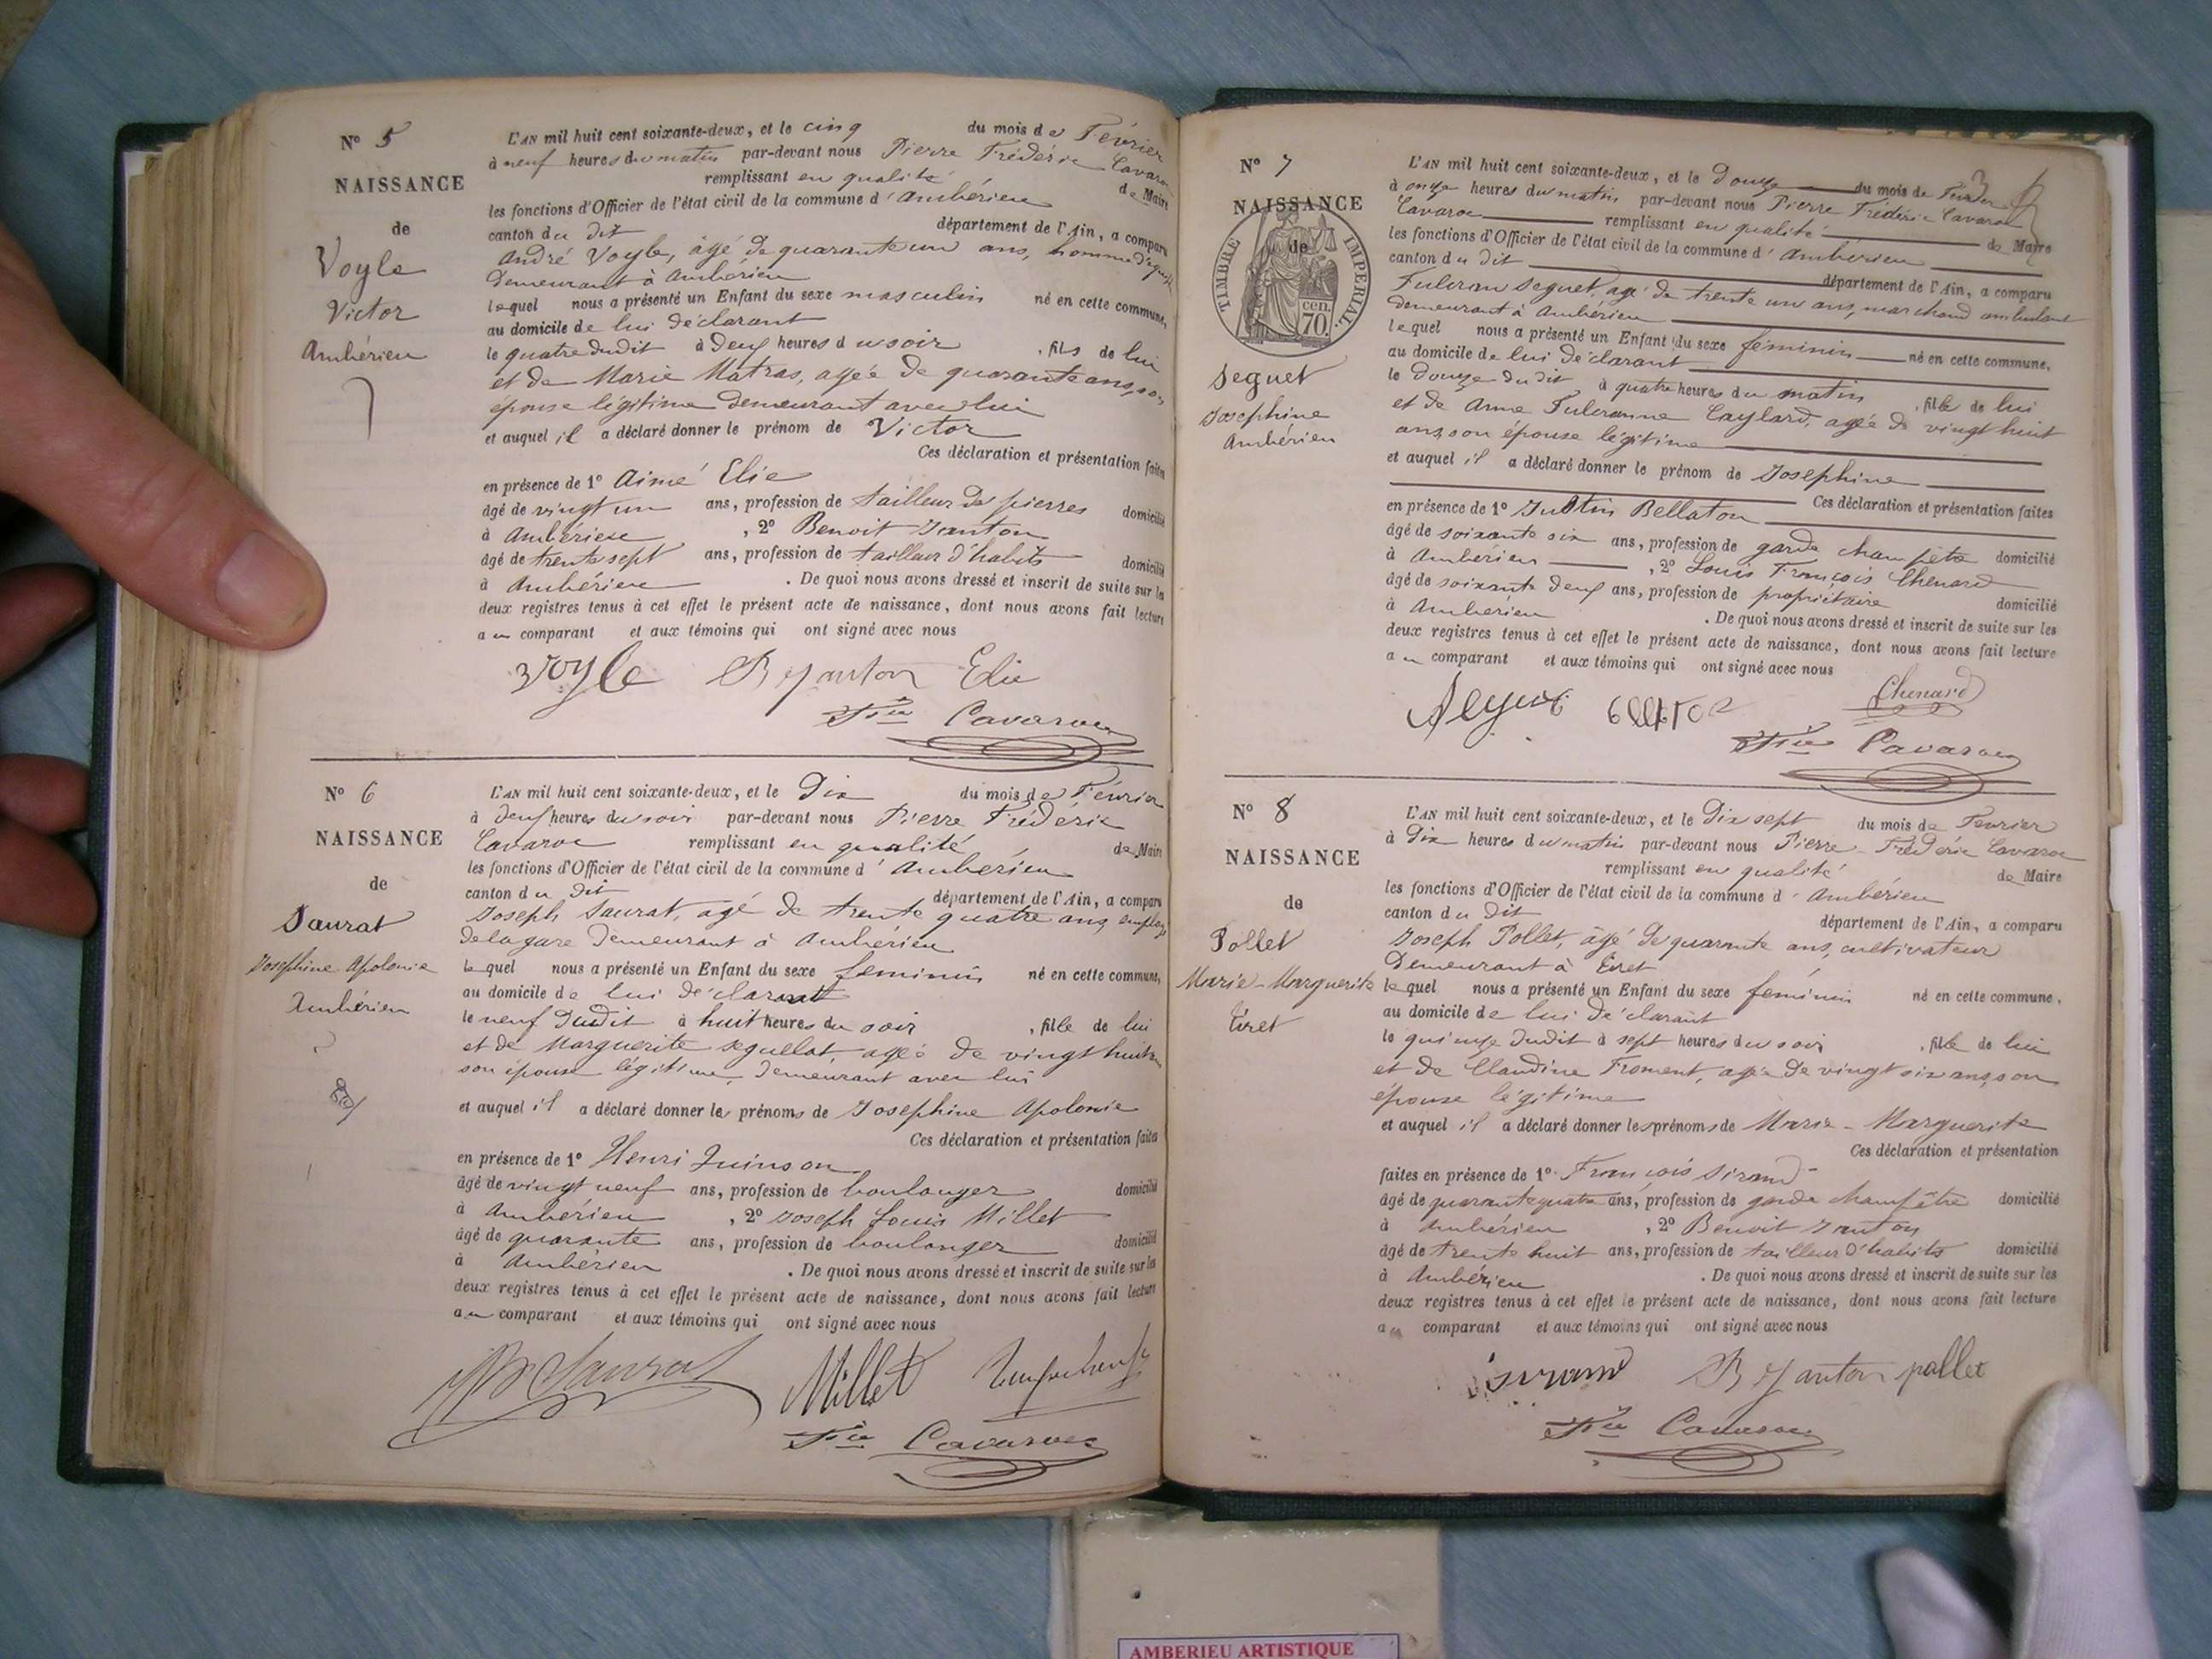 N° 5
NAISSANCE
de
Voyle
Victor
Ambérieu
L'AN mil huit cent soixante-deux, et le cinq du mois de Février
à neuf heures du matin par-devant nous Pierre Frédéric Cavaroc
remplissant en qualité de Maire
les fonctions d'Officier de l'état civil de la commune d'Ambérieu
canton du dit département de l'Ain, a comparu
André Voyle, âgé de quarante un ans, homme d'équipe
demeurant à Ambérieu
lequel nous a présenté un Enfant du sexe masculin né en cette commune,
au domicile de lui déclarant
le quatre dudit à deux heures du soir, fils de lui
et de Marie Matras, agée de quarante ans, son
épouse légitime demeurant avec lui
et auquel il a déclaré donner le prénom de Victor
Ces déclaration et présentation faites
en présence de 1° Aimé Elie
âgé de vingt un ans, profession de tailleur de pierres domicilié
à Ambérieu, 2° Benoit Janton
âgé de trente sept ans, profession de tailleur d'habits domicilié
à Ambérieu. De quoi nous avons dressé et inscrit de suite sur les
deux registres tenus à cet effet le présent acte de naissance, dont nous avons fait lecture
au comparant et aux témoins qui ont signé avec nous
Voyle B Janton Elie
Fric Cavaroc
N° 6
NAISSANCE
de
Saurat
Josephine Apolonie
Ambérieu
L'AN mil huit cent soixante-deux, et le Dix du mois de Février
à deux heures du soir par-devant nous Pierre Frédéric
Cavaroc remplissant en qualité de Maire
les fonctions d'Officier de l'état civil de la commune d'Ambérieu
canton du dit département de l'Ain, a comparu
Joseph Saurat, agé de trente quatre ans, employé
de la gare demeurant à Ambérieu
lequel nous a présenté un Enfant du sexe feminin né en cette commune,
au domicile de lui déclarant
le neuf dudit à huit heures du soir, fille de lui
et de Marguerite Seguellat, agée de vingt huit ans
son épouse légitime, demeurant avec lui
et auquel il a déclaré donner les prénoms de Josephine Apolonie
Ces déclaration et présentation faites
en présence de 1° Henri Quinson
âgé de vingt neuf ans, profession de boulanger domicilié
à Ambérieu, 2° Joseph Louis Millet
âgé de quarante ans, profession de boulanger domicilié
à Ambérieu. De quoi nous avons dressé et inscrit de suite sur les
deux registres tenus à cet effet le présent acte de naissance, dont nous avons fait lecture
au comparant et aux témoins qui ont signé avec nous
Saurat Millet
Fric Cavaroc
N° 7
NAISSANCE
de
TIMBRE IMPERIAL
70 cen.
Seguet
Josephine
Ambérieu
L'AN mil huit cent soixante-deux, et le Douze du mois de Février
à onze heures du matin par-devant nous Pierre Frédéric Cavaroc
Cavaroc remplissant en qualité de Maire
les fonctions d'Officier de l'état civil de la commune d'Ambérieu
canton du dit département de l'Ain, a comparu
Fulcran Seguet, agé de trente un ans, marchand ambulant
demeurant à Ambérieu
lequel nous a présenté un Enfant du sexe féminin né en cette commune,
au domicile de lui déclarant
le Douze du dit à quatre heures du matin, fille de lui
et de Anne Fulcranne Caylard, agée de vingt huit
ans, son épouse légitime
et auquel il a déclaré donner le prénom de Josephine
Ces déclaration et présentation faites
en présence de 1° Justin Bellaton
âgé de soixante six ans, profession de garde champêtre domicilié
à Ambérieu, 2° Louis François Chenard
âgé de soixante deux ans, profession de propriétaire domicilié
à Ambérieu. De quoi nous avons dressé et inscrit de suite sur les
deux registres tenus à cet effet le présent acte de naissance, dont nous avons fait lecture
au comparant et aux témoins qui ont signé avec nous
Chenard
Fric Cavaroc
N° 8
NAISSANCE
de
Pollet
Marie-Marguerite
Tiret
L'AN mil huit cent soixante-deux, et le Dix sept du mois de Fevrier
à Dix heures du matin par-devant nous Pierre-Fréderic Cavaroc
remplissant en qualité de Maire
les fonctions d'Officier de l'état civil de la commune d'Ambérieu
canton du dit département de l'Ain, a comparu
Joseph Pollet, âgé de quarante ans, cultivateur
demeurant à Tiret
lequel nous a présenté un Enfant du sexe feminin né en cette commune,
au domicile de lui déclarant
le quinze dudit à sept heures du soir, fille de lui
et de Claudine Froment, agée de vingt six ans, son
épouse légitime
et auquel il a déclaré donner les prénoms de Marie-Marguerite
Ces déclaration et présentation
faites en présence de 1° François Sirand
âgé de quarante quatre ans, profession de garde champêtre domicilié
à Ambérieu, 2° Benoit Janton
âgé de trente huit ans, profession de tailleur d'habits domicilié
à Ambérieu. De quoi nous avons dressé et inscrit de suite sur les
deux registres tenus à cet effet le présent acte de naissance, dont nous avons fait lecture
au comparant et aux témoins qui ont signé avec nous
Sirand B Janton pollet
Fric Cavaroc
AMBERIEU ARTISTIQUE